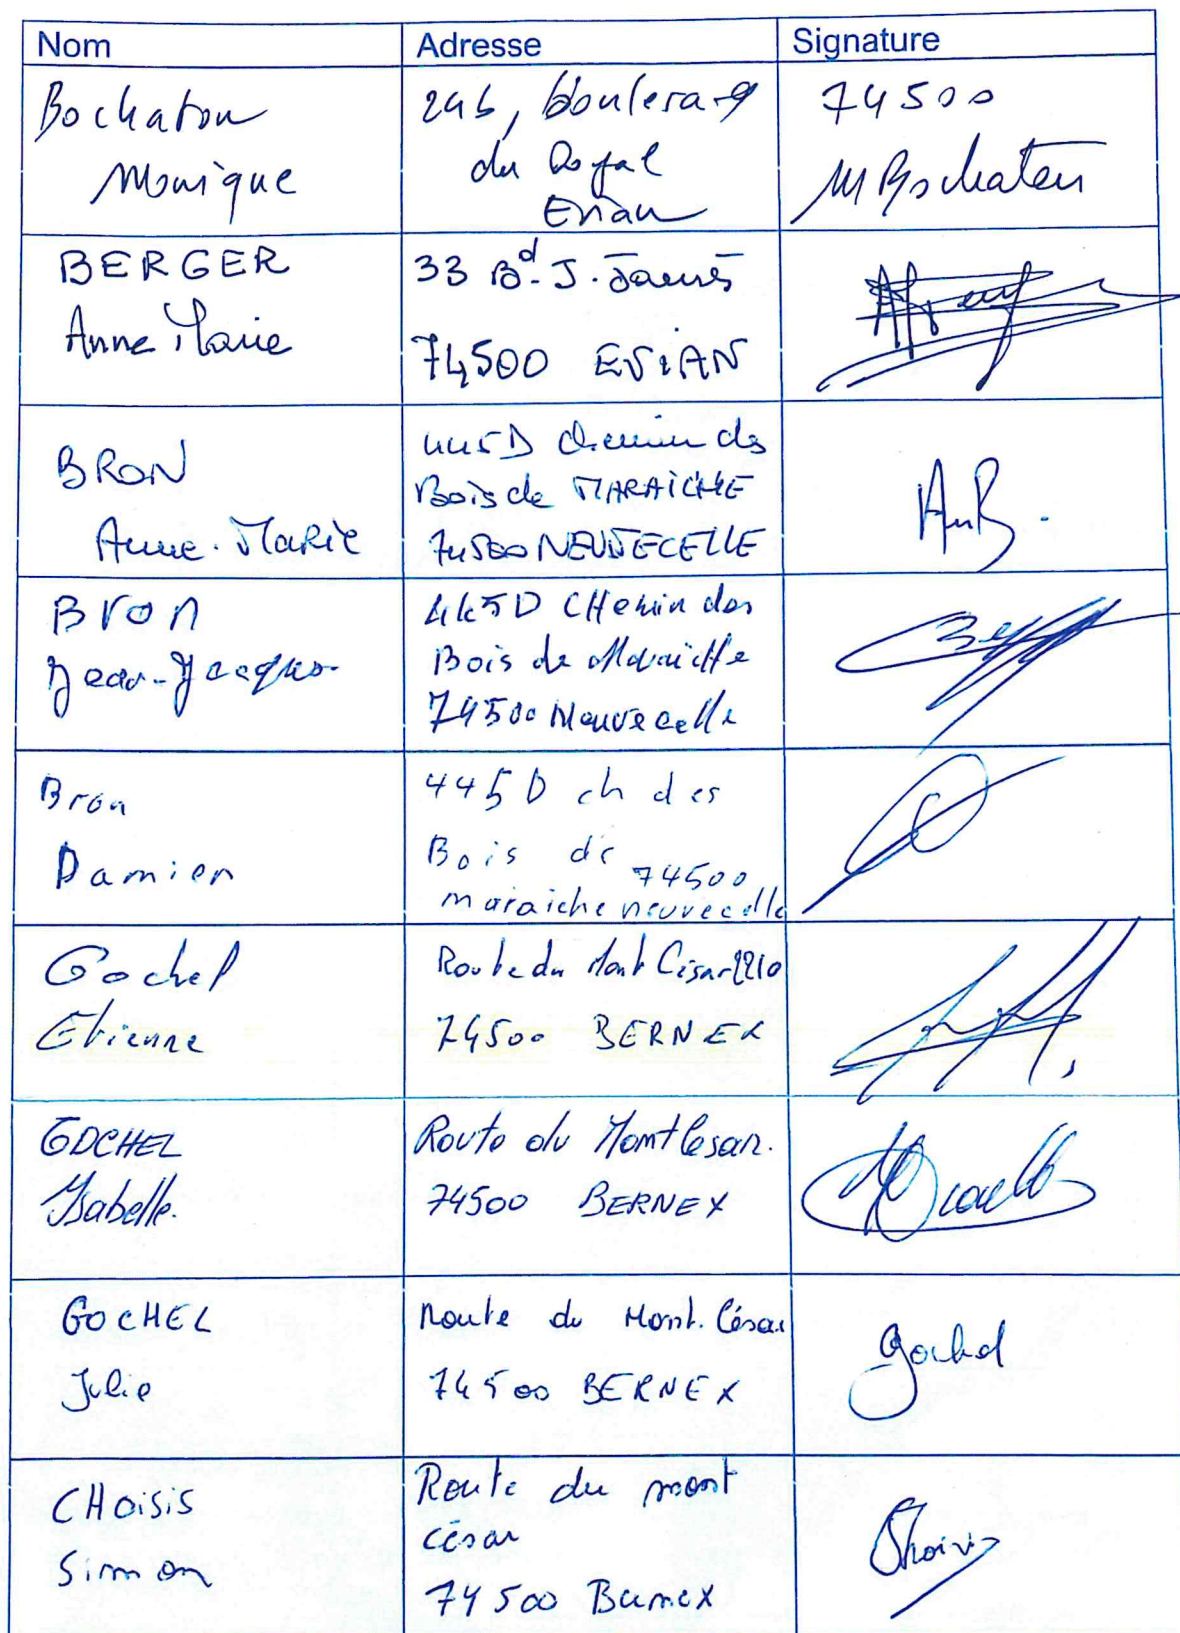 Nom Adresse Signature
Bochaton
Monique
246, boulevard
du Royal
Evian
74500
M Bochaton
BERGER
Anne Marie
33 Bd. J. Jaurès
74500 EViAN
BRON
Anne-Marie
445D chemin des
Bois de MARAICHE
74500 NEUVECELLE
AnB.
Bron
Jean-Jacques
445D CHemin des
Bois de MaraicHe
74500 Neuvecelle
Bron
Damien
445D ch des
Bois de 74500
maraiche neuvecelle
Gochel
Etienne
Route du Mont César 2210
74500 BERNEX
GOCHEL
Isabelle.
Route du Mont César.
74500 BERNEX
GOCHEL
Julie
Route du Mont. César
74500 BERNEX
Gochel
CHOiSiS
Simon
Route du mont
césar
74500 Bernex
Choisis